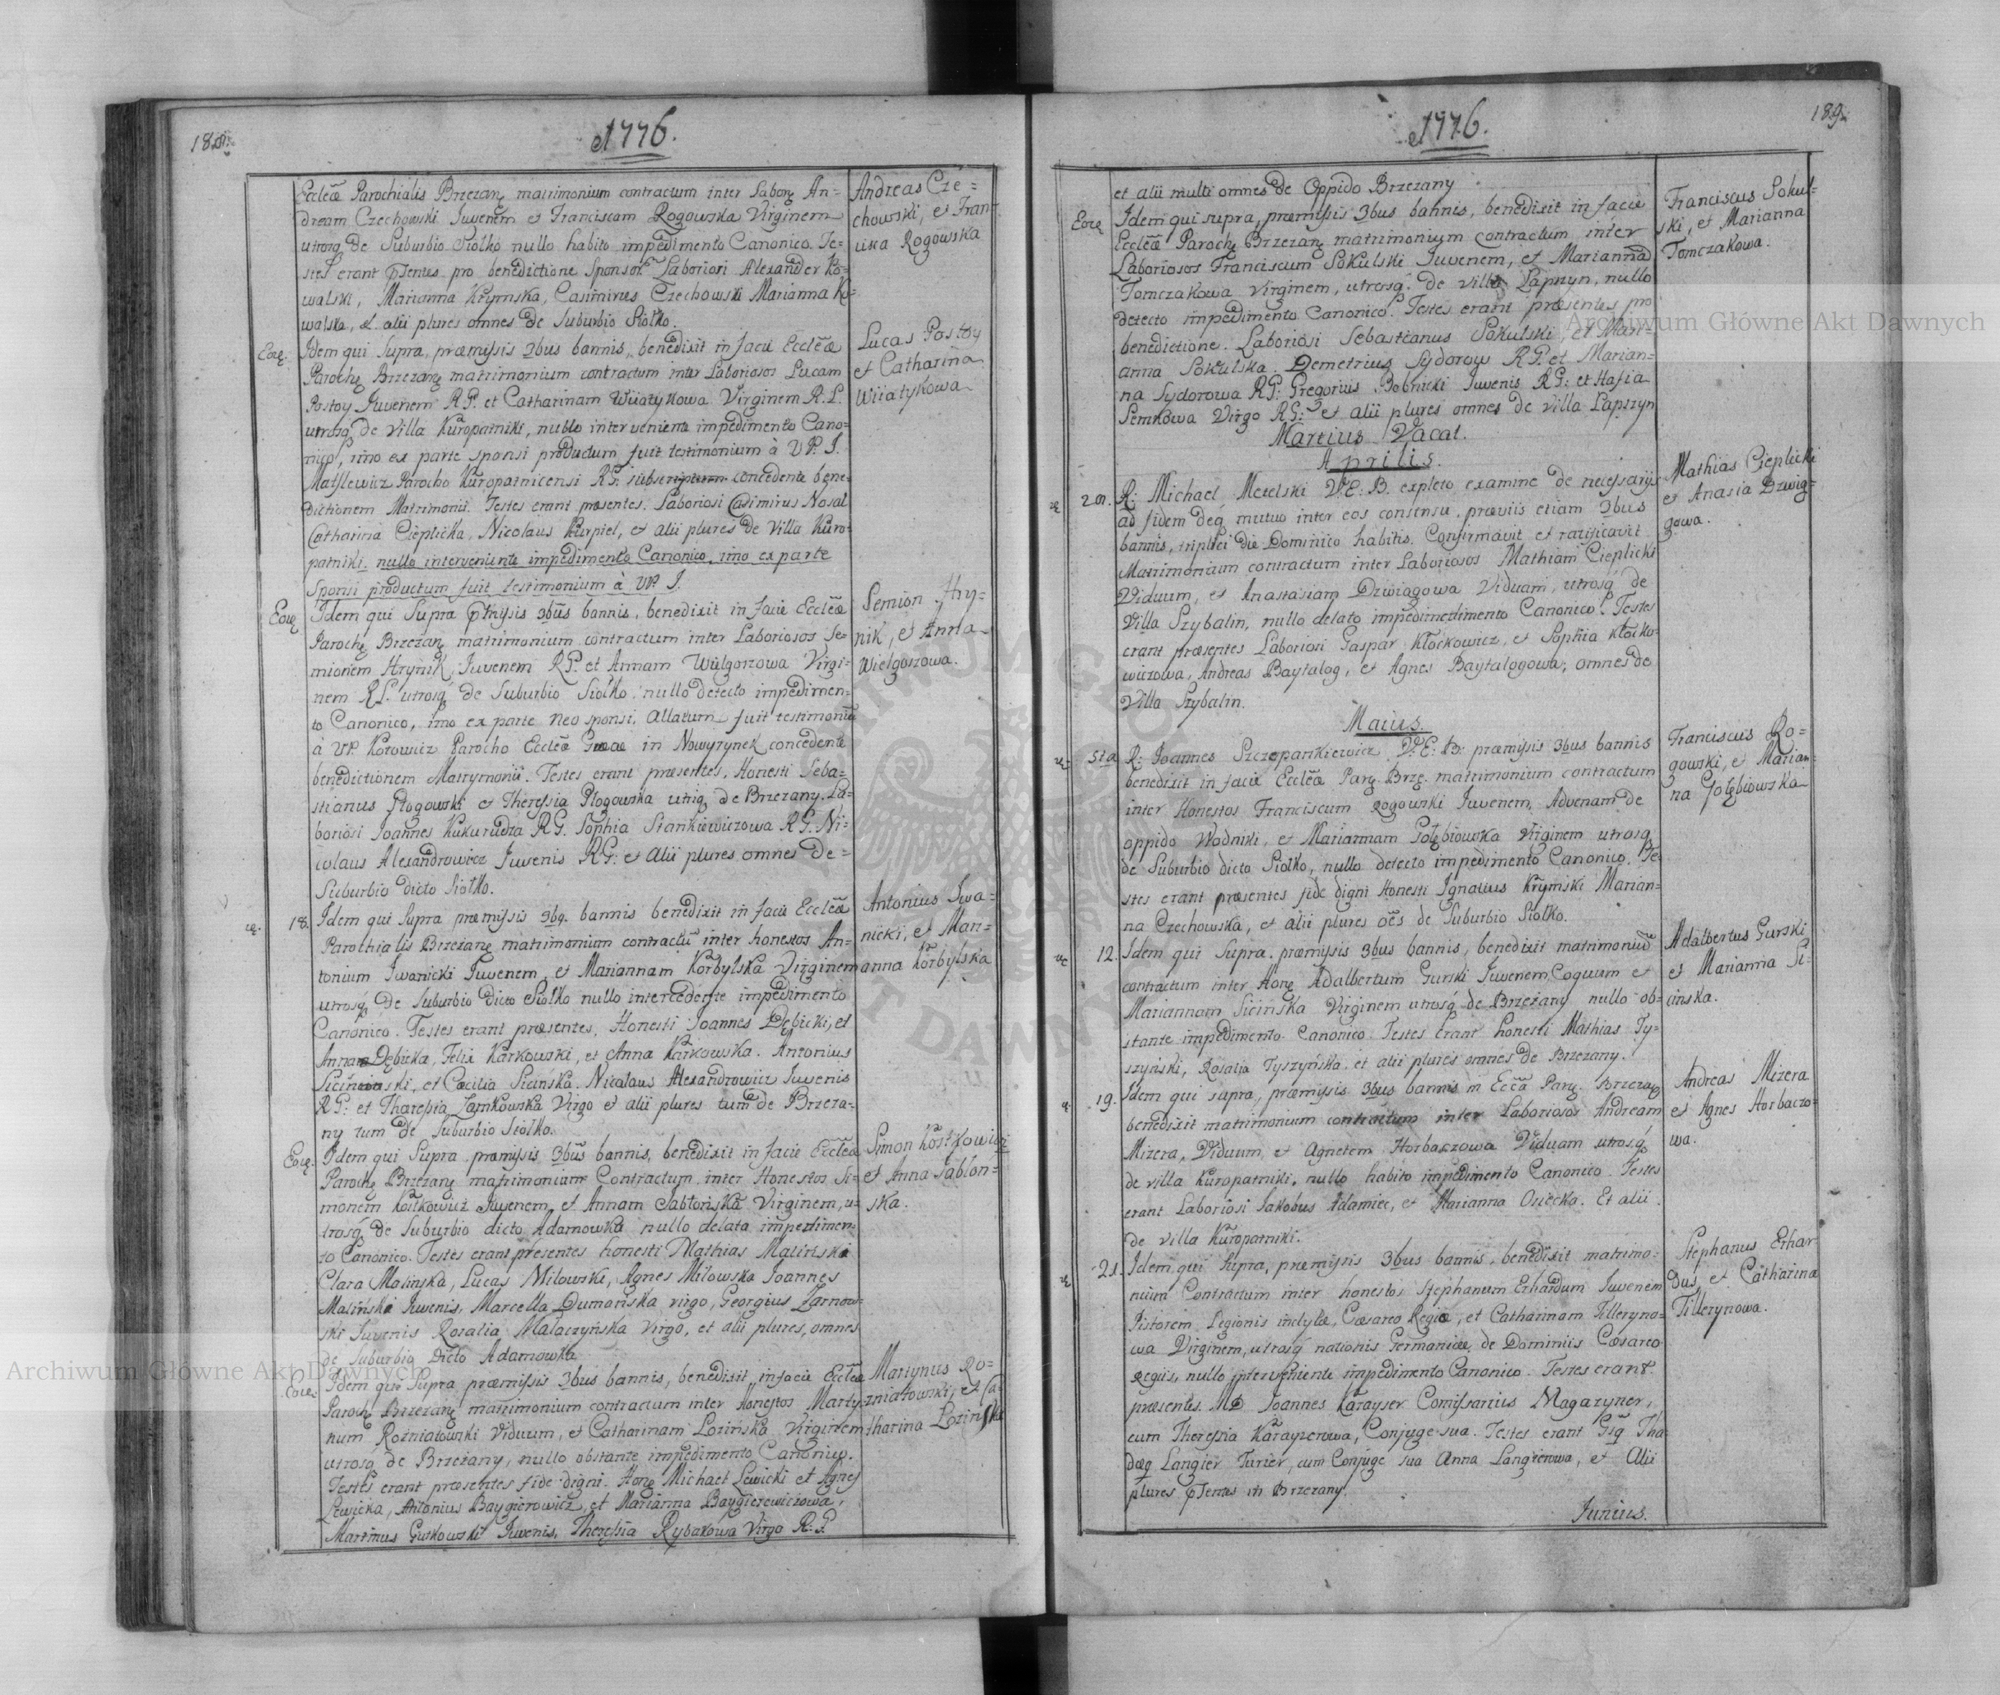 188.
1776.
Eccłæ Parochialis Brzezanę matrimonium contractum inter Laborę An=
dream Czechowski Juvenem et Franciscam Rogowska Virginem
utrosq de Suburbio Siołko nullo habito impedimento Canonico. Te=
stes erant pntes pro benedictione Sponsor Laboriosi Alexander Ko=
walski, Marianna Krymska, Casimirus Czechowski Marianna Ko=
walska, et alii plures omnes de Suburbio Siołko.
Andreas Cze=
chowski, et Fran=
cisca Rogowska
Eoq. Idem qui Supra, præmissis 3bus bannis, benedixit in facie Eccłæ
Parochę Brzezanę matrimonium contractum inter Laboriosos Lucam
Postoy Juvenem R.G. et Catharinam Wiiatykowa Virginem R.L.
utrosq de Villa Kuropatniki, nullo interveniente impedimento Cano=
nico, imo ex parte sponsi productum fuit testimonium à VP. J.
Matslewicz Parocho Kuropatnicensi R.G. subscriptum concedente bene=
dictionem Matrimonii. Testes erant præsentes. Laboriosi Casimirus Nosal
Catharina Cieplicka, Nicolaus Kurpiel, et alii plures de Villa Kuro=
patniki. nullo interveniente impedimento Canonico, imo ex parte
Sponsi productum fuit testimonium à VP. J.
Lucas Postoy
et Catharina
Wiiatykowa
Eoq Idem qui Supra pmissis 3bus bannis, benedixit in facie Eccłæ
Parochę Brzezanę matrimonium contractum inter Laboriosos Se=
mionem Hrynik Juvenem R.G. et Annam Wielgoszowa Virgi=
nem R.L. utrosq de Suburbio Siołko, nullo detecto impedimen=
to Canonico, imo ex parte Neo sponsi, allatum fuit testimoniu
à VP. Kotowicz Parocho Eccłæ Grææ in Nowyrynek concedente
benedictionem Matrymonii. Testes erant præsentes, Honesti Seba=
stianus Głogowski et Theressia Głogowska utriq de Brzezany. La=
boriosi Joannes Kukurudza R.G. Sophia Stankiewiczowa R.G. Ni=
colaus Alexandrowicz Juvenis R.G. et alii plures omnes de=
Suburbio dicto Siołko.
Semion Hry=
nik, et Anna
Wielgoszowa.
18. Idem qui Supra præmissis 3bq. bannis benedixit in facie Eccłæ
Parochialis Brzezanę matrimonium contractu inter honestos An=
tonium Jwanicki Juvenem, et Mariannam Korbylska Virginem
utrosq de Suburbio dicto Siołko nullo intercedente impedimento
Canonico. Testes erant præsentes, Honesti Joannes Dębicki, et
Anna Dębicka, Felix Karkowski, et Anna Karkowska. Antonius
Siciński, et Cæcilia Sicińska. Nicolaus Alexandrowicz Juvenis
R.G: et Tharessia Zamkowska Virgo et alii plures tum de Brzeza=
ny tum de Suburbio Siołko.
Antonius Jwa=
nicki, et Mari=
anna Korbylska
Eoq. Idem qui Supra, præmissis 3bus bannis, benedixit in facie Eccłæ
Parochę Brzezanę matrimonium Contractum inter Honestos Si=
monem Kostkowicz Juvenem, et Annam Jabłońska Virginem, u=
trosq de Suburbio dicto Adamowka nullo delata impedimen
to Canonico. Testes erant presentes honesti Mathias Maliński
Clara Malińska, Lucas Miłowski, Agnes Miłowska Joannes
Maliński Juvenis, Marcella Dumańska virgo, Georgius Zarnow=
ski Juvenis Rosalia Małaczyńska Virgo, et alii plures, omnes
de Suburbio Dicto Adamowka
Simon Kostkowicz
et Anna Jabłoń=
ska.
Eoq. Idem qui Supra præmissis 3bus bannis, benedixit in facie Eccłæ
Parochę Brzezanę matrimonium contractum inter Honestos Marty=
num Rozniatowski Viduum, et Catharinam Lozińska Virginem
utrosq de Brzeżany, nullo obstante impedimento Canonico.
Testes erant præsentes fide digni. Honę Michael Lewicki et Agnes
Lewicka, Antonius Baygierowicz, et Marianna Baygierewiczowa,
Martinus Gutkowski Juvenis, Theressia Rybakowa Virgo R.G.
Martynus Ro=
zniatowski, et Ca=
tharina Lozińska
1776.
189.
et alii multi omnes de Oppido Brzezany
Eoq Idem qui supra, præmissis 3bus bannis, benedixit in facie
Eccłæ Parochę Brzezanę matrimonium contractum inter
Laboriosos Franciscum Sokulski Juvenem, et Mariannā
Tomczakowa Virginem, utrosq. de villa Łapszyn, nullo
detecto impedimento Canonico. Testes erant præsentes pro
benedictione. Laboriosi Sebastianus Sokulski, et Mari=
anna Sokulska. Demetrius Sydorow R.G. et Marian=
na Sydorowa R.G: Gregorius Bobnicki Juvenis R.G: et Hasia
Semkowa Virgo R.G: et alii plures omnes de villa Łapszyn
Franciscus Sokul=
ski, et Marianna
Tomczakowa.
Martius Vacat.
Aprilis.
R: Michael Metelski V.C.B. expleto examine de necessarijs
ad fidem deq mutuo inter eos consensu, præviis etiam 3bus
bannis, triplici die Dominico habitis. Confirmavit et ratificavit
Matrimonium contractum inter Laboriosos Mathiam Cieplicki
Viduum, et Anastasiam Dzwigowa Viduam, utrosq. de
Villa Szybalin, nullo delato impedimento Canonico. Testes
erant præsentes Laboriosi Gaspar Kłockowicz, et Sophia Kłocko=
wiczowa, Andreas Baytalog, et Agnes Baytalogowa, omnes de
Villa Szybalin.
Mathias Cieplicki
et Anasia Dzwig=
gowa.
Maius
5ta R: Joannes Szczepankiewicz V.C: B: præmissis 3bus bannis
benedixit in facie Eccłæ Parę Brzę. matrimonium contractum
inter Honestos Franciscum Rogowski Juvenem, Advenam de
oppido Wodniki, et Mariannam Gołębiowska Virginem utrosq
de Suburbio dicto Siołko, nullo detecto impedimento Canonico. Te=
stes erant præsentes fide digni Honesti Ignatius Krymski Marian=
na Czechowska, et alii plures oes de Suburbio Siołko.
Franciscus Ro=
gowski, et Marian=
na Gołębiowska
12. Idem qui Supra, præmissis 3bus bannis, benedixit matrimoniu
contractum inter Honę Adalbertum Gurski Juvenem, Coquum et
Mariannam Sicińska Virginem utrosq de Brzeżany nullo ob=
stante impedimento Canonico Testes Erant honesti Mathias Ty=
szyński, Rosalia Tyszyńska, et alii plures omnes de Brzezany.
Adalbertus Gurski,
et Marianna Si=
cinska.
19. Idem qui supra, præmissis 3bus bannis in Eccā Parę Brzezanę
benedixit matrimonium contractum inter Laboriosos Andream
Mizera, Viduum, et Agnetem Horbaczowa Viduam utrosq
de villa Kuropatniki, nullo habito impedimento Canonico. Testes
erant Laboriosi Jakobus Adamiec, et Marianna Osiecka. Et alii
de villa Kuropatniki.
Andreas Mizera
et Agnes Horbaczo=
wa.
21. Idem, qui Supra, præmissis 3bus bannis, benedixit matrimo=
nium Contractum inter honestos Stephanum Erhardum Juvenem
Pistorem Legionis inclytæ, Cæsareo Regiæ, et Catharinam Tilleryno=
wa Virginem, utrosq nationis Germanicæ de Dominiis Cæsareo
Regiis, nullo interveniente impedimento Canonico. Testes erant
præsentes. MD Joannes Karayser Comissarius Magazyner,
cum Theressia Karayzerowa, Conjuge sua. Testes erant Gsq Tha
dæq Langier Furier, cum Conjuge sua Anna Langierowa, et Alii
plures pntes in Brzezany.
Stephanus Erhar
dus, et Catharina
Tillerynowa.
Junius.
Archiwum Główne Akt Dawnych
Archiwum Główne Akt Dawnych
ARCHIWUM GŁÓWNE AKT DAWNYCH